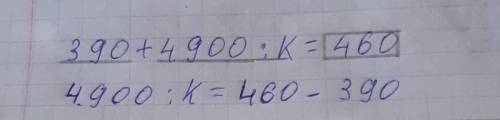 390+4900:K=460
4.900:K=460-390